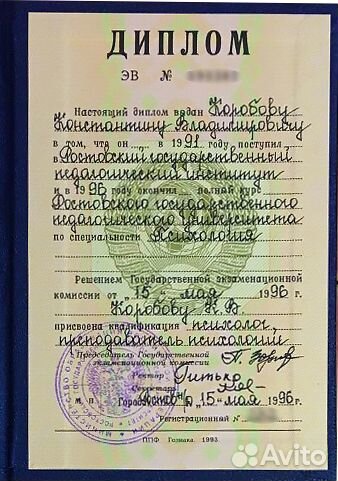 ДИПЛОМ
ЭВ №
Настоящий диплом выдан Коробову
Константину Владимировичу
в том, что он в 1991 году поступил
в Ростовский государственный
педагогический институт
и в 1996 году окончил полный курс
Ростовского государственного
педагогического университета
по специальности Психология
Решением Государственной экзаменационной
комиссии от "15" мая 1996 г.
Коробову К.В.
присвоена квалификация психолог,
преподаватель психологии
Председатель Государственной
экзаменационной комиссии
Ректор
Секретарь
М. п. Город "15" мая 1996 г.
Регистрационный №
ППФ Гознака. 1993.
Avito